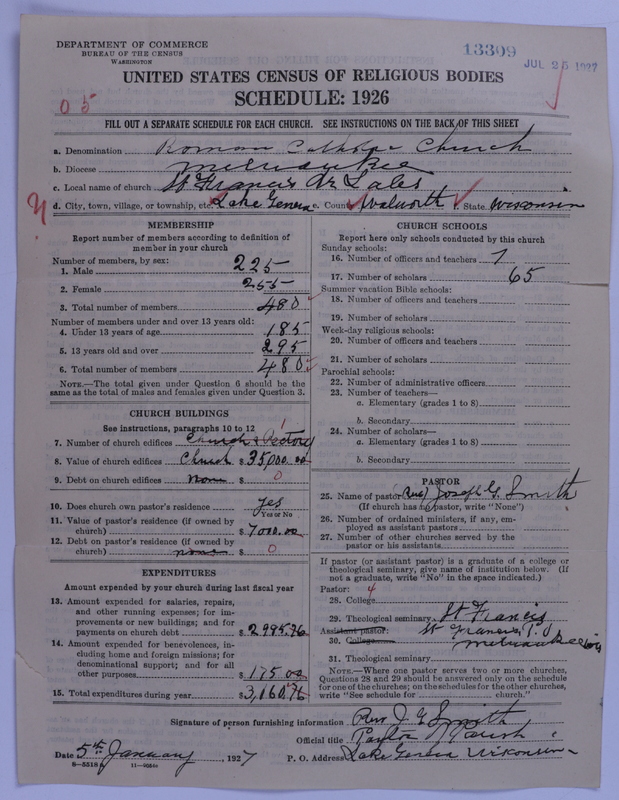 DEPARTMENT OF COMMERCE
BUREAU OF THE CENSUS
WASHINGTON
13309
JUL 25 1927
UNITED STATES CENSUS OF RELIGIOUS BODIES
SCHEDULE: 1926
05
FILL OUT A SEPARATE SCHEDULE FOR EACH CHURCH. SEE INSTRUCTIONS ON THE BACK OF THIS SHEET
a. Denomination Roman Catholic Church
b. Diocese Milwaukee
c. Local name of church St Francis de Sales
d. City, town, village, or township, etc. Lake Geneva e. County Walworth f. State Wisconsin
MEMBERSHIP
Report number of members according to definition of member in your church
Number of members, by sex:
1. Male 225
2. Female 255
3. Total number of members 480
Number of members under and over 13 years old:
4. Under 13 years of age 185
5. 13 years old and over 295
6. Total number of members 480
NOTE.—The total given under Question 6 should be the
same as the total of males and females given under Question 3.
CHURCH BUILDINGS
See instructions, paragraphs 10 to 12
7. Number of church edifices Church & Rectory 1
8. Value of church edifices Church $ 35000.00
9. Debt on church edifices none $ 0
10. Does church own pastor's residence? yes
Yes or No
11. Value of pastor's residence (if owned by
church) $ 7000.00
12. Debt on pastor's residence (if owned by
church) none $ 0
EXPENDITURES
Amount expended by your church during last fiscal year
13. Amount expended for salaries, repairs,
and other running expenses; for im-
provements or new buildings; and for
payments on church debt $ 2995.96
14. Amount expended for benevolences, in-
cluding home and foreign missions; for
denominational support; and for all
other purposes $ 175.00
15. Total expenditures during year $
CHURCH SCHOOLS
Report here only schools conducted by this church
Sunday schools:
16. Number of officers and teachers 7
17. Number of scholars 65
Summer vacation Bible schools:
18. Number of officers and teachers
19. Number of scholars
Week-day religious schools:
20. Number of officers and teachers
21. Number of scholars
Parochial schools:
22. Number of administrative officers
23. Number of teachers—
a. Elementary (grades 1 to 8)
b. Secondary
24. Number of scholars—
a. Elementary (grades 1 to 8)
b. Secondary
PASTOR
25. Name of pastor (Rev) Joseph G. Smith
(If church has no pastor, write "None")
26. Number of ordained ministers, if any, em-
ployed as assistant pastors
27. Number of other churches served by the
pastor or his assistants
If pastor (or assistant pastor) is a graduate of a college or
theological seminary, give name of institution below. (If
not a graduate, write "No" in the space indicated.)
Pastor: 4
28. College
29. Theological seminary St Francis
Assistant pastor: St Francis
30. College Milwaukee
31. Theological seminary
NOTE.—Where one pastor serves two or more churches,
Questions 28 and 29 should be answered only on the schedule
for one of the churches; on the schedules for the other churches,
write "See schedule for church."
Signature of person furnishing information Rev J. G. Smith
Official title Pastor Parish
Date 5th January, 1927 P. O. Address Lake Geneva Wisconsin
8-5518